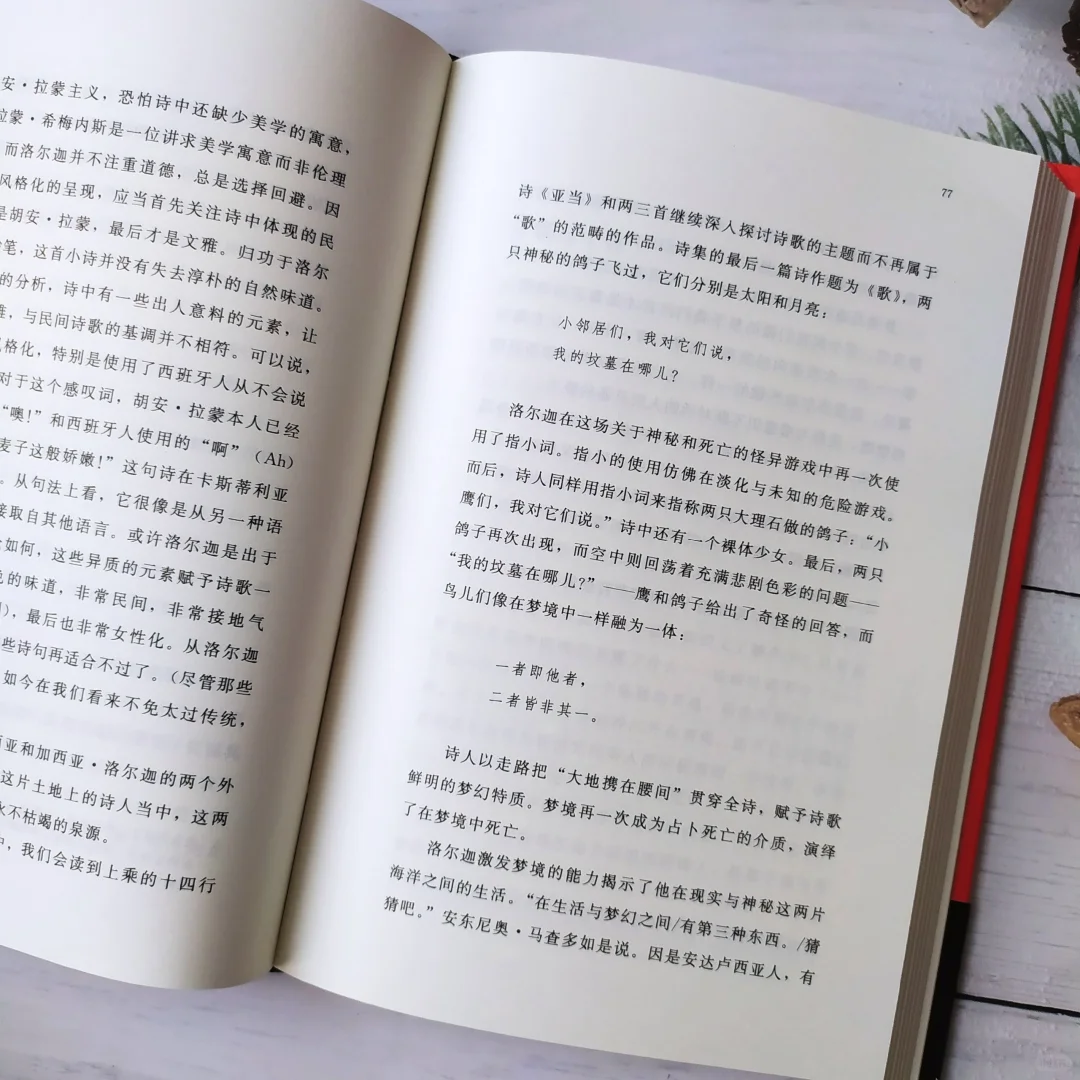 安·拉蒙主义，恐怕诗中还缺少美学的寓意，
拉蒙·希梅内斯是一位讲求美学寓意而非伦理
而洛尔迦并不注重道德，总是选择回避。因
风格化的呈现，应当首先关注诗中体现的民
是胡安·拉蒙，最后才是文雅。归功于洛尔
笔，这首小诗并没有失去淳朴的自然味道。
的分析，诗中有一些出人意料的元素，让
，与民间诗歌的基调并不相符。可以说，
风格化，特别是使用了西班牙人从不会说
对于这个感叹词，胡安·拉蒙本人已经
“噢！”和西班牙人使用的“啊”（Ah）
麦子这般娇嫩！”这句诗在卡斯蒂利亚
。从句法上看，它很像是从另一种语
接取自其他语言。或许洛尔迦是出于
如何，这些异质的元素赋予诗歌一
的味道，非常民间，非常接地气
），最后也非常女性化。从洛尔迦
些诗句再适合不过了。（尽管那些
如今在我们看来不免太过传统，
亚和加西亚·洛尔迦的两个外
这片土地上的诗人当中，这两
永不枯竭的泉源。
中，我们会读到上乘的十四行
77
诗《亚当》和两三首继续深入探讨诗歌的主题而不再属于
“歌”的范畴的作品。诗集的最后一篇诗作题为《歌》，两
只神秘的鸽子飞过，它们分别是太阳和月亮：
小邻居们，我对它们说，
我的坟墓在哪儿？
洛尔迦在这场关于神秘和死亡的怪异游戏中再一次使
用了指小词。指小的使用仿佛在淡化与未知的危险游戏。
而后，诗人同样用指小词来指称两只大理石做的鸽子：“小
鹰们，我对它们说。”诗中还有一个裸体少女。最后，两只
鸽子再次出现，而空中则回荡着充满悲剧色彩的问题——
“我的坟墓在哪儿？”——鹰和鸽子给出了奇怪的回答，而
鸟儿们像在梦境中一样融为一体：
一者即他者，
二者皆非其一。
诗人以走路把“大地携在腰间”贯穿全诗，赋予诗歌
鲜明的梦幻特质。梦境再一次成为占卜死亡的介质，演绎
了在梦境中死亡。
洛尔迦激发梦境的能力揭示了他在现实与神秘这两片
海洋之间的生活。“在生活与梦幻之间/有第三种东西。/猜
猜吧。”安东尼奥·马查多如是说。因是安达卢西亚人，有